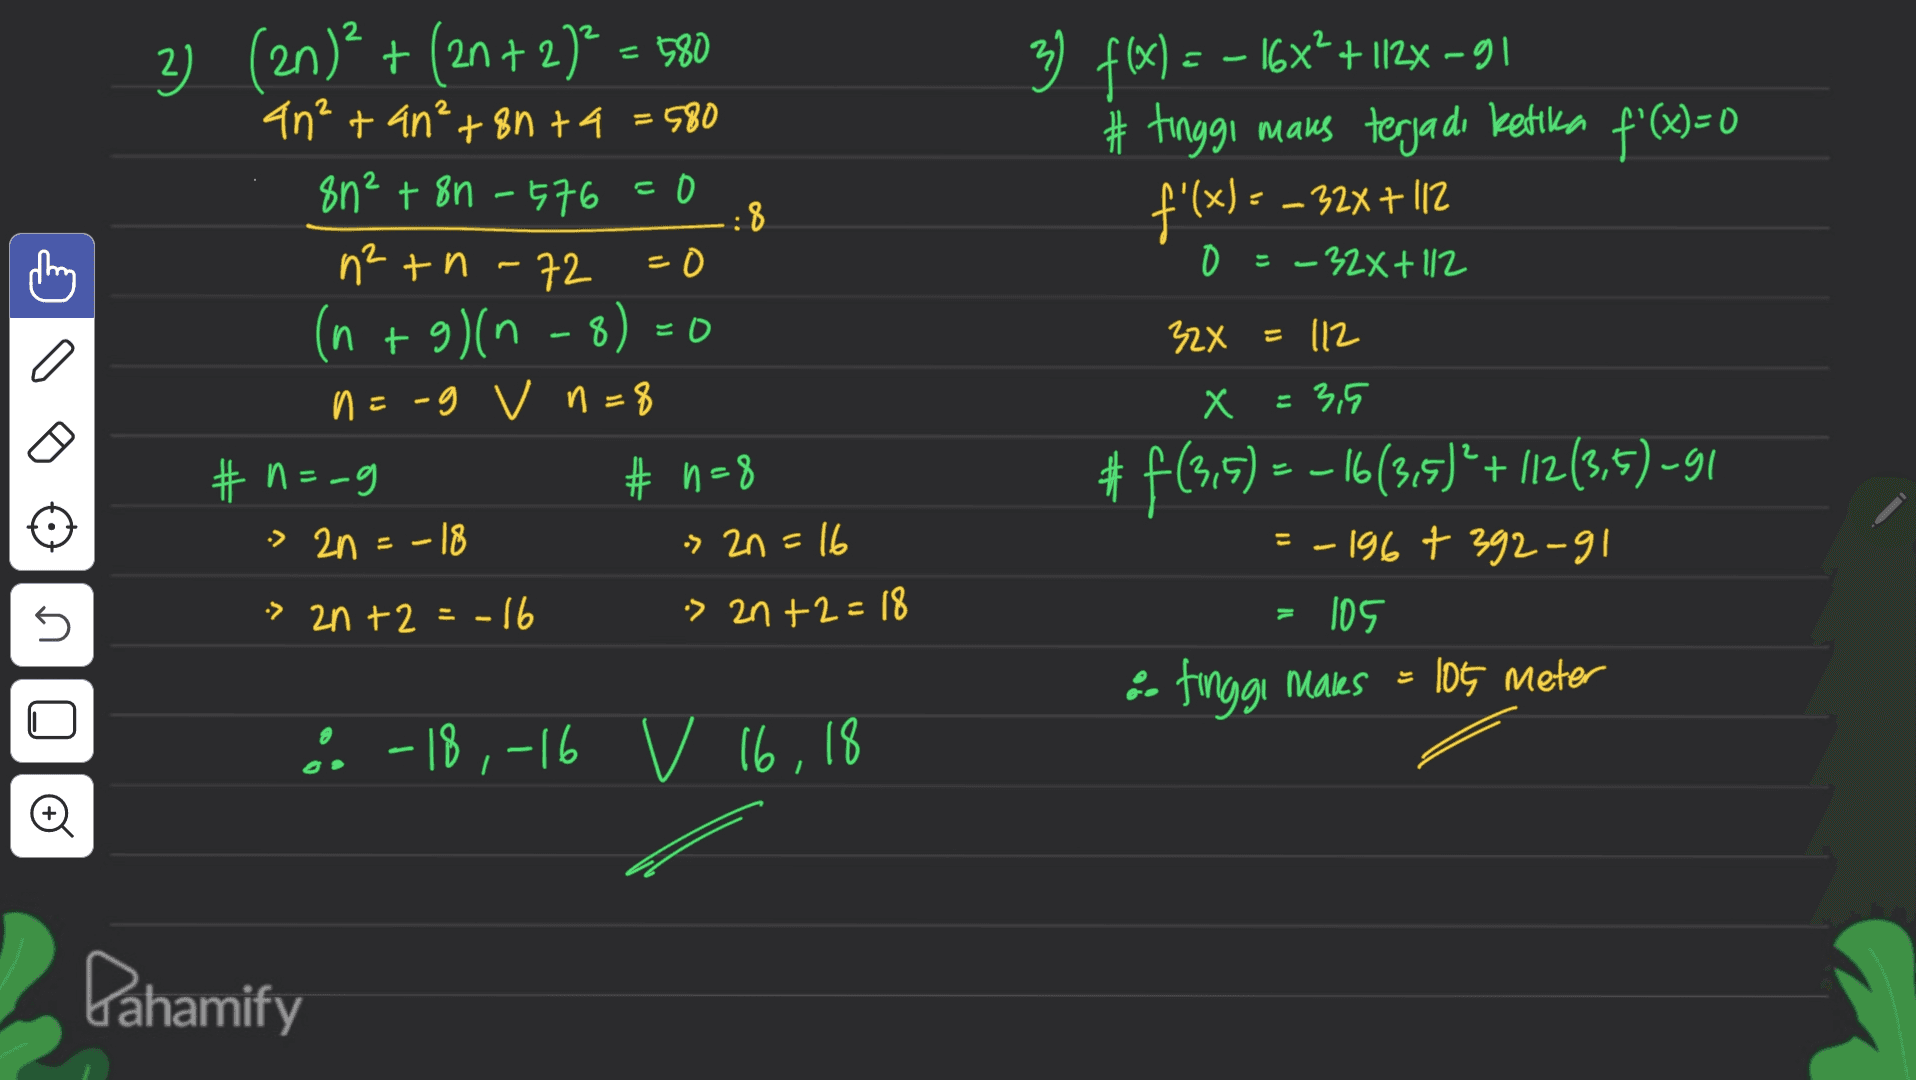 2) (2n)² + (2n+2)² = 580
4n² + 4n² + 8n + 4 = 580
8n² + 8n - 576 = 0
:8
n² + n - 72 = 0
(n + 9)(n - 8) = 0
n = -9 V n = 8
# n = -9
-> 2n = -18
-> 2n + 2 = -16
# n = 8
-> 2n = 16
-> 2n + 2 = 18
∴ -18, -16 V 16, 18
3) f(x) = -16x² + 112x - 91
# tinggi maks terjadi ketika f'(x)=0
f'(x) = -32x + 112
0 = -32x + 112
32x = 112
x = 3,5
# f(3,5) = -16(3,5)² + 112(3,5) - 91
= -196 + 392 - 91
= 105
∴ tinggi maks = 105 meter
Pahamify